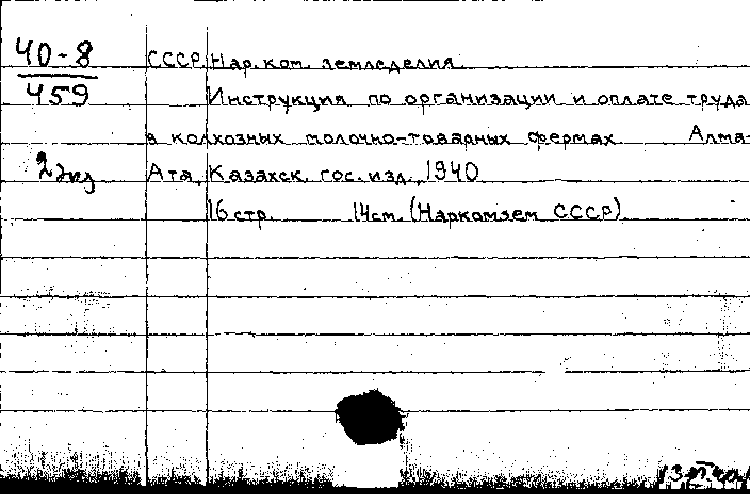 40-8
459
СССР. Нар. ком. земледелия.
Инструкция по организации и оплате труда
в колхозных молочно-товарных фермах Алма-
2 экз
Ата, Казахск. гос. изд., 1940
16 стр. 14 см. (Наркомзем СССР)